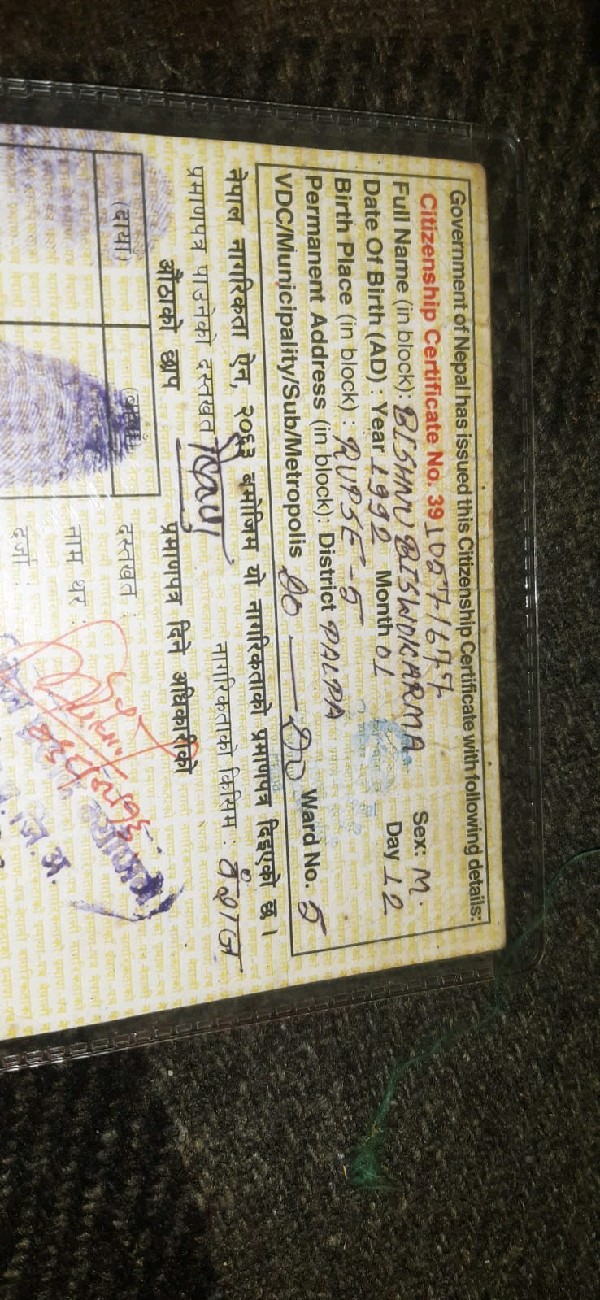 Government of Nepal has issued this Citizenship Certificate with following details:
Citizenship Certificate No. 391027/677
Full Name (in block): BISHNU BISWOKARMA Sex: M.
Date Of Birth (AD) : Year 1992 Month 01 Day 12
Birth Place (in block) : RUPSE-5
Permanent Address (in block): District PALPA
VDC/Municipality/Sub/Metropolis Do — Do Ward No. 5
नेपाल नागरिकता ऐन, २०६३ बमोजिम यो नागरिकताको प्रमाणपत्र दिइएको छ ।
नागरिकताको किसिम : वंशज
प्रमाणपत्र पाउनेको दस्तखत
औंठाको छाप प्रमाणपत्र दिने अधिकारीको
(दायाँ) (बायाँ) दस्तखत :
नाम थर :
दर्जा :